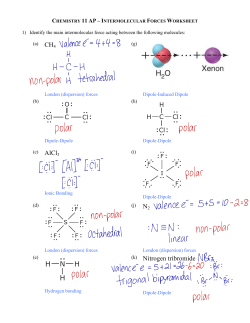 CHEMISTRY 11 AP – INTERMOLECULAR FORCES WORKSHEET
1) Identify the main intermolecular force acting between the following molecules:
(a) CH₄ valence e⁻ = 4+4=8
H
H – C – H
H
non-polar
tetrahedral
London (dispersion) forces
(g)
H₂O
Xenon
Dipole-Induced Dipole
(b)
:O:
:Cl – C – Cl:
polar
Dipole-Dipole
(h)
H
H – C – Cl:
:Cl:
polar
Dipole-Dipole
(c) AlCl₃
[:Cl:]⁻ [Al]³⁺ [:Cl:]⁻
[:Cl:]⁻
Ionic Bonding
(i)
polar
Dipole-Dipole
(d)
S
non-polar
octahedral
London (dispersion) forces
(j) N₂ valence e⁻ = 5+5=10-2=8
:N≡N:
linear
non-polar
London (dispersion) forces
(e)
H – N – H
H
polar
Hydrogen bonding
(k) Nitrogen tribromide NBr₃
valence e⁻ = 5+21=26-6=20
trigonal bipyramidal
Dipole-Dipole
polar